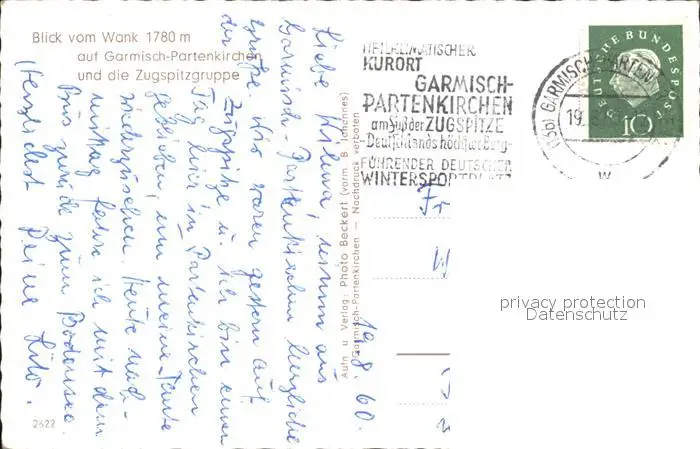 Blick vom Wank 1780 m
auf Garmisch-Partenkirchen
und die Zugspitzgruppe
HEILKLIMATISCHER
KURORT
GARMISCH-
PARTENKIRCHEN
am Fuß der ZUGSPITZE
-Deutschlands höchster Berg-
FÜHRENDER DEUTSCHER
WINTERSPORTPLATZ
GARMISCH-PARTENK
19.
DEUTSCHE BUNDESPOST
10
19.8.60.
Liebe Helma, nimm aus
Garmisch-Partenkirchen herzliche
Grüße. Wir waren gestern auf
der Zugspitze u. ich bin einen
Tag hier in Partenkirchen
geblieben, um meine Tante
wiederzusehen. Heute nach-
mittag fahre ich mit dem
Bus zurück zum Bodensee.
Herzlichst Deine
Aufn u Verlag: Photo Beckert (vorm. B Johannes)
Garmisch-Partenkirchen – Nachdruck verboten
Fr
W
2622
privacy protection
Datenschutz